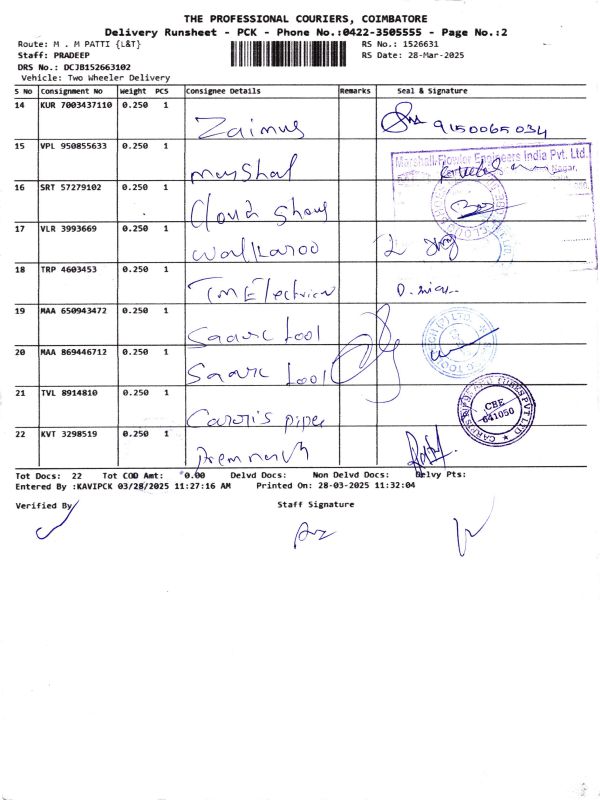 THE PROFESSIONAL COURIERS, COIMBATORE
Delivery Runsheet - PCK - Phone No.:0422-3505555 - Page No.:2
Route: M . M PATTI {L&T} RS No.: 1526631
Staff: PRADEEP RS Date: 28-Mar-2025
DRS No.: DCJB152663102
Vehicle: Two Wheeler Delivery
S No Consignment No Weight PCS Consignee Details Remarks Seal & Signature
14 KUR 7003437110 0.250 1 Zaimus 9150065034
15 VPL 950855633 0.250 1 Marshal
Marshall-Fowler Engineers India Pvt. Ltd.
16 SRT 57279102 0.250 1 Cloud
17 VLR 3993669 0.250 1 Walkaroo
18 TRP 4603453 0.250 1 TM Electrical
19 MAA 650943472 0.250 1 Saarc tool
20 MAA 869446712 0.250 1 Saarc tool
21 TVL 8914810 0.250 1 pipes
CBE
641050
22 KVT 3298519 0.250 1
Tot Docs: 22 Tot COD Amt: 0.00 Delvd Docs: Non Delvd Docs: Delvy Pts:
Entered By :KAVIPCK 03/28/2025 11:27:16 AM Printed On: 28-03-2025 11:32:04
Verified By Staff Signature